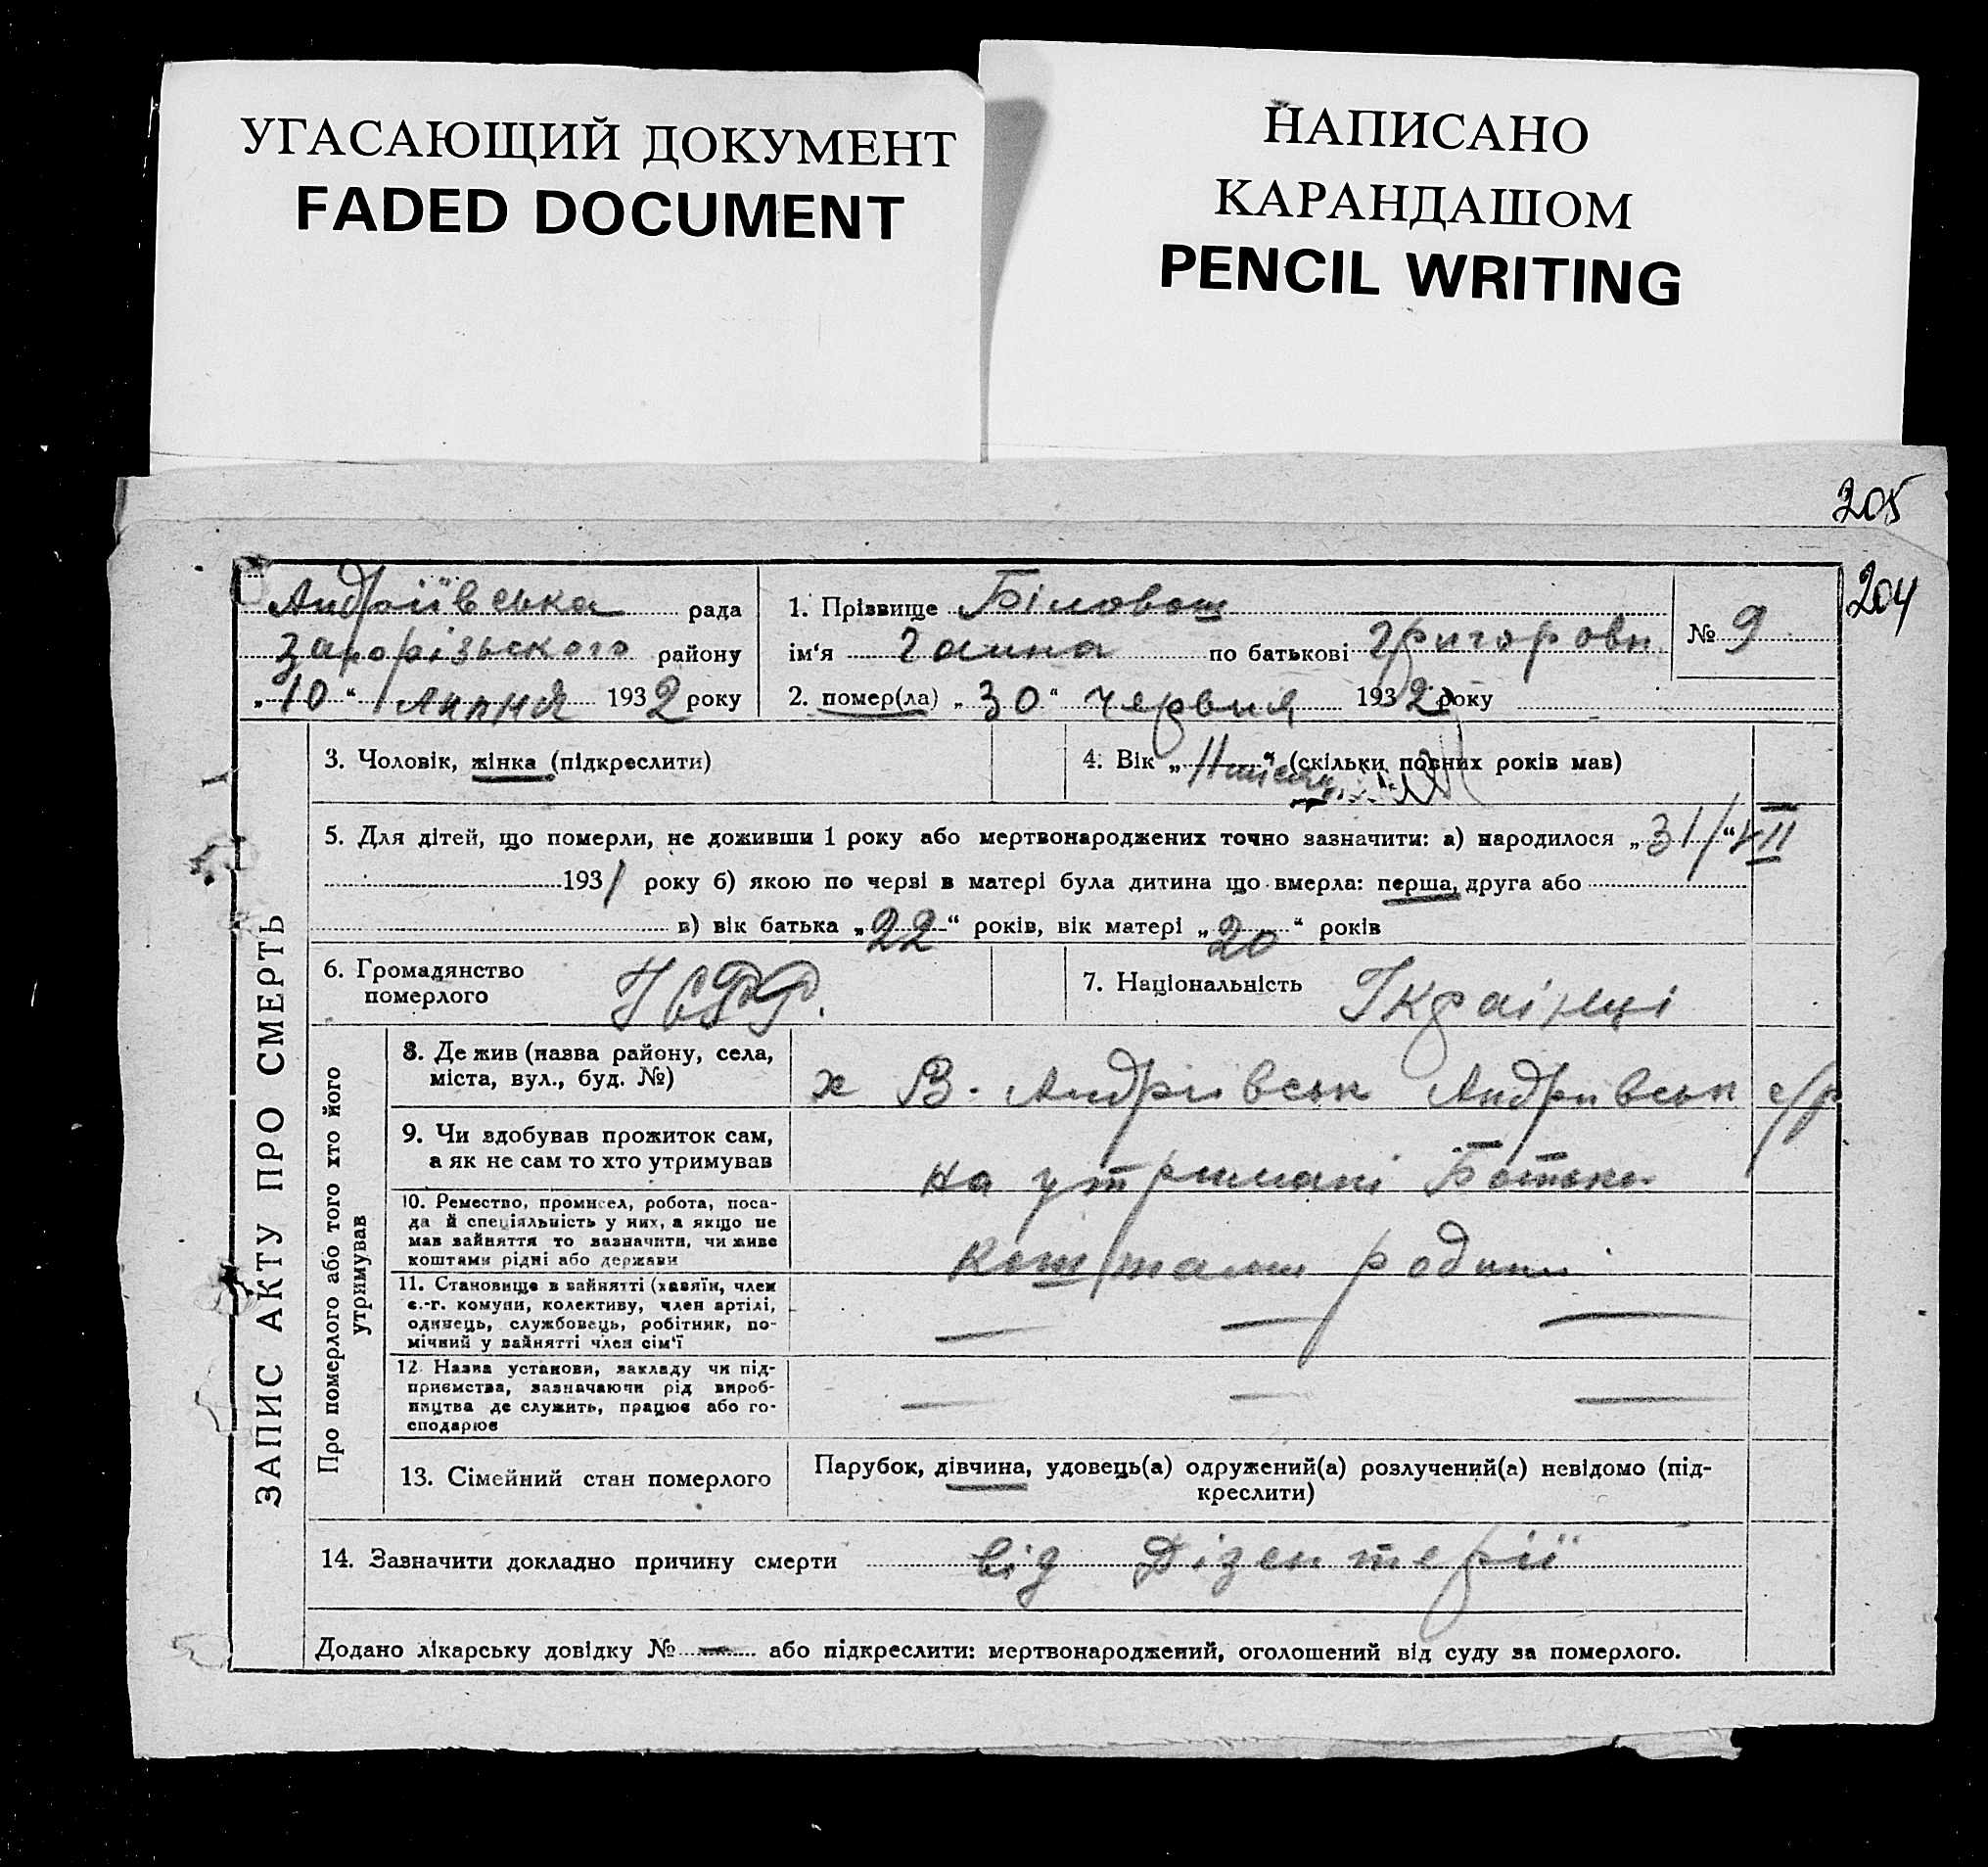 УГАСАЮЩИЙ ДОКУМЕНТ
FADED DOCUMENT
НАПИСАНО
КАРАНДАШОМ
PENCIL WRITING
205
204
Андріївська рада
Запорізького району
„10“ липня 1932 року
1. Прізвище Біловол
ім‘я Ганна по батькові Григоровн
2. помер(ла) „30“ червня 1932 року
№ 9
ЗАПИС АКТУ ПРО СМЕРТЬ
3. Чоловік, жінка (підкреслити)
4. Вік „11 місяц“ (скільки повних років мав)
5. Для дітей, що померли, не доживши 1 року або мертвонароджених точно зазначити: а) народилося „31/“VII
1931 року б) якою по черві в матері була дитина що вмерла: перша, друга або
в) вік батька „22“ років, вік матері „20“ років
6. Громадянство
померлого
УСРР.
7. Національність Україңці
Про померлого або того хто його
утримував
8. Де жив (назва району, села,
міста, вул., буд. №)
х В. Андрівськ Андрівськ с/р
9. Чи здобував прожиток сам,
а як не сам то хто утримував
на утримані Батька
10. Ремество, промисел, робота, поса-
да й спеціяльність у них, а якщо не
мав зайняття то зазначити, чи живе
коштами рідні або держави
коштами родини
11. Становище в зайнятті (хазяїн, член
с.-г. комуни, колективу, член артілі,
одинець, службовець, робітник, по-
мічний у зайнятті член сім‘ї
— — —
12. Назва установи, закладу чи під-
приємства, зазначаючи рід вироб-
ництва де служить, працює або го-
сподарює
— — —
13. Сімейний стан померлого
Парубок, дівчина, удовець(а) одружений(а) розлучений(а) невідомо (під-
креслити)
14. Зазначити докладно причину смерти від Дізентерії
Додано лікарську довідку № — або підкреслити: мертвонароджений, оголошений від суду за померлого.